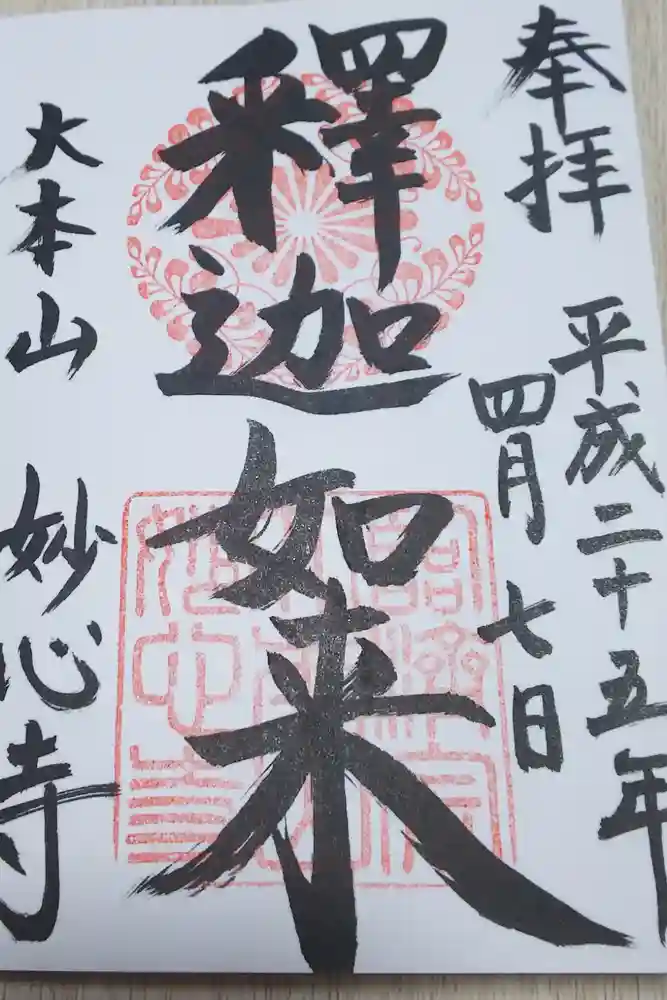 奉拝
平成二十五年
四月七日
釋迦如来
大本山
妙心寺